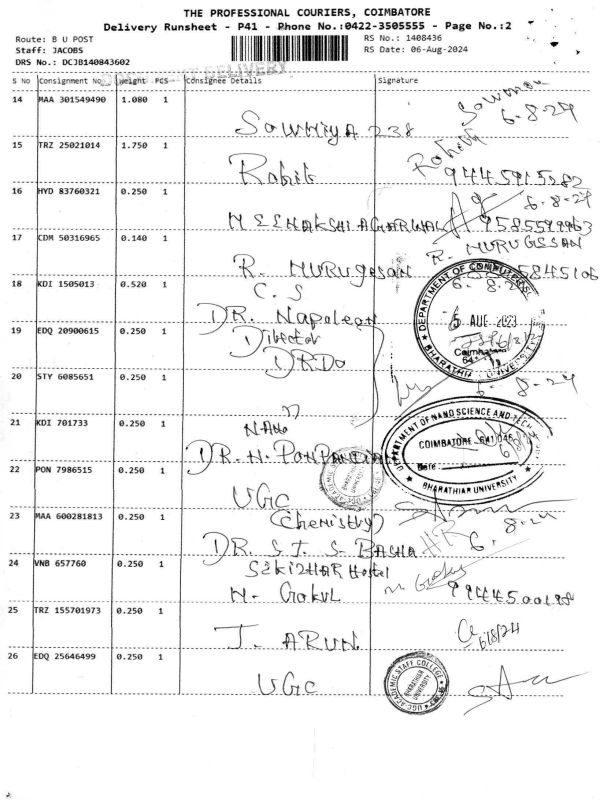 THE PROFESSIONAL COURIERS, COIMBATORE
Delivery Runsheet - P41 - Phone No.:0422-3505555 - Page No.:2
Route: B U POST
RS No.: 1408436
Staff: JACOBS
RS Date: 06-Aug-2024
DRS No.: DCJB140843602
DELIVERY
S No Consignment No Weight PCS Consignee Details Signature
14 MAA 301549490 1.080 1
Sowmiya 238
6.8.24
15 TRZ 25021014 1.750 1
Rohit Rohith
16 HYD 83760321 0.250 1
6.8.24
MEENAKSHI AGARWAL 9585599963
17 CDM 50316965 0.140 1
R. MURUGESAN
R. MURUGESAN
18 KDI 1505013 0.520 1
C.S 6.8.24
DR. Napoleon
DEPARTMENT OF COMPUTER
5 AUG 2023
Coimbatore
BHARATHIAR UNIVERSITY
19 EDQ 20900615 0.250 1
Director
DRDO
20 STY 6085651 0.250 1
6.8.24
21 KDI 701733 0.250 1
NANO
DR. N. PONPANDIAN
DEPARTMENT OF NANO SCIENCE AND TECH
COIMBATORE 641 046
Date
BHARATHIAR UNIVERSITY
22 PON 7986515 0.250 1
UGC
23 MAA 600281813 0.250 1
(Chemistry)
6.8.24
DR. S. J. S. BASHA
24 VNB 657760 0.250 1
SEKIZHAR Hostel
N. Gokul
25 TRZ 155701973 0.250 1
J. ARUN 6/8/24
26 EDQ 25646499 0.250 1
UGC
UGC-ACADEMIC STAFF COLLEGE
BHARATHIAR
UNIVERSITY